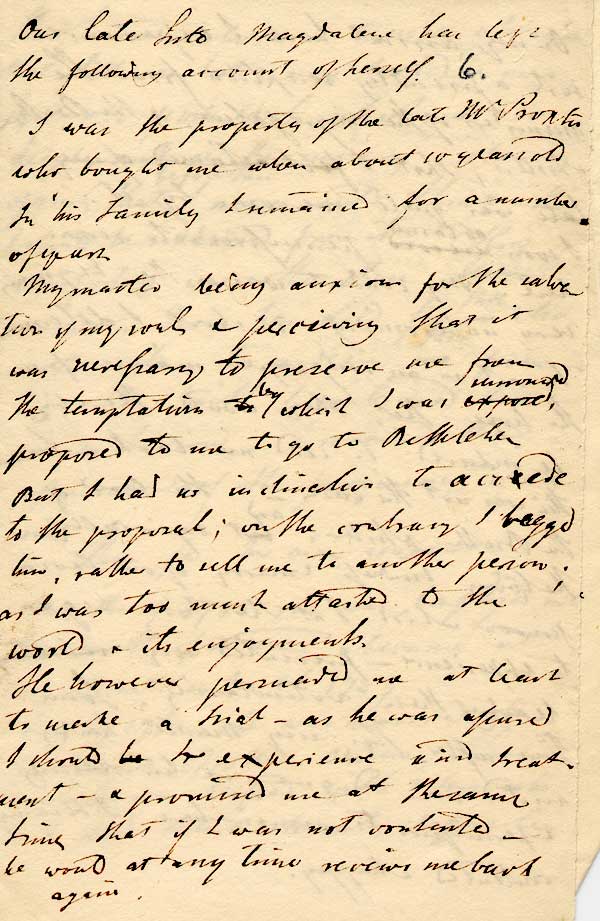 Our late Sister Magdalene has left
the following account of herself. 6.
I was the property of the late Mr
who bought me when about 10 years old
In his Family I remained for a number
of years
My master being anxious for the salva
tion of my soul & perceiving that it
was necessary to preserve me from
surrounded
the temptations to by which I was exposed,
proposed to me to go to Bethlehem
But I had no inclination to accede
to the proposal; on the contrary I begged
him, rather to sell me to another person;
as I was too much attached to the
world & its enjoyments.
He however persuaded me at least
to make a trial – as he was assured
I should be experience kind treat-
ment – & promised me at the same
time, that if I was not contented –
he would at any time receive me back
again.